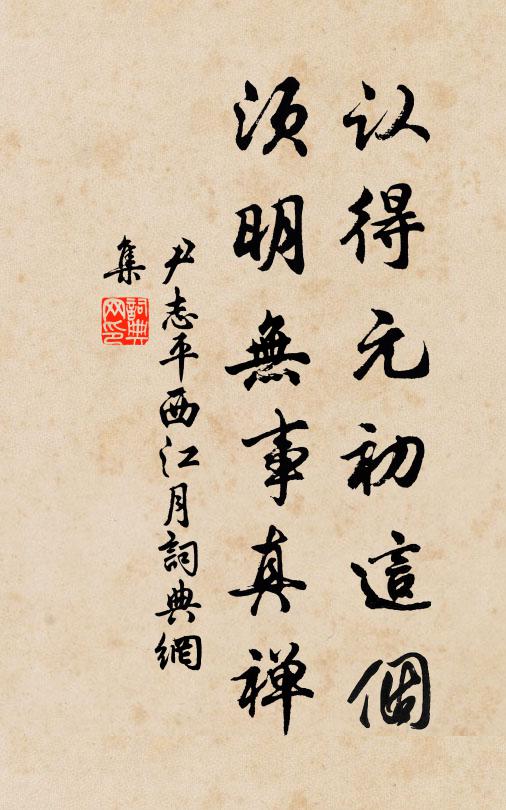 认得元初這個
须明無事真禅
尹志平西江月詞典網
集
詞典
网印